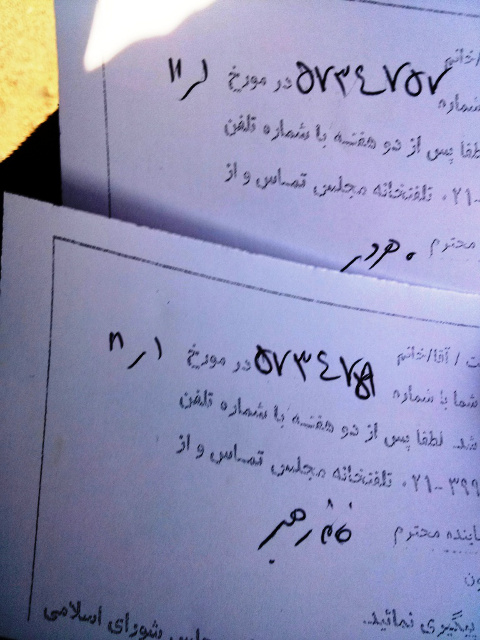 /خانم
شماره ۵۷۳٤۷۵۷ در مورخ
لطفا پس از دو هفته با شماره تلفن
۰۲۱- تلفنخانه مجلس تماس و از
محترم
ت / آقا/خانم
شما با شماره ۵۷۳٤۷۵۸ در مورخ
شد. لطفا پس از دو هفته با شماره تلفن
۳۹۹-۰۲۱ تلفنخانه مجلس تماس و از
ماینده محترم خانم رهبر
ون
پیگیری نمائید.
مجلس شورای اسلامی